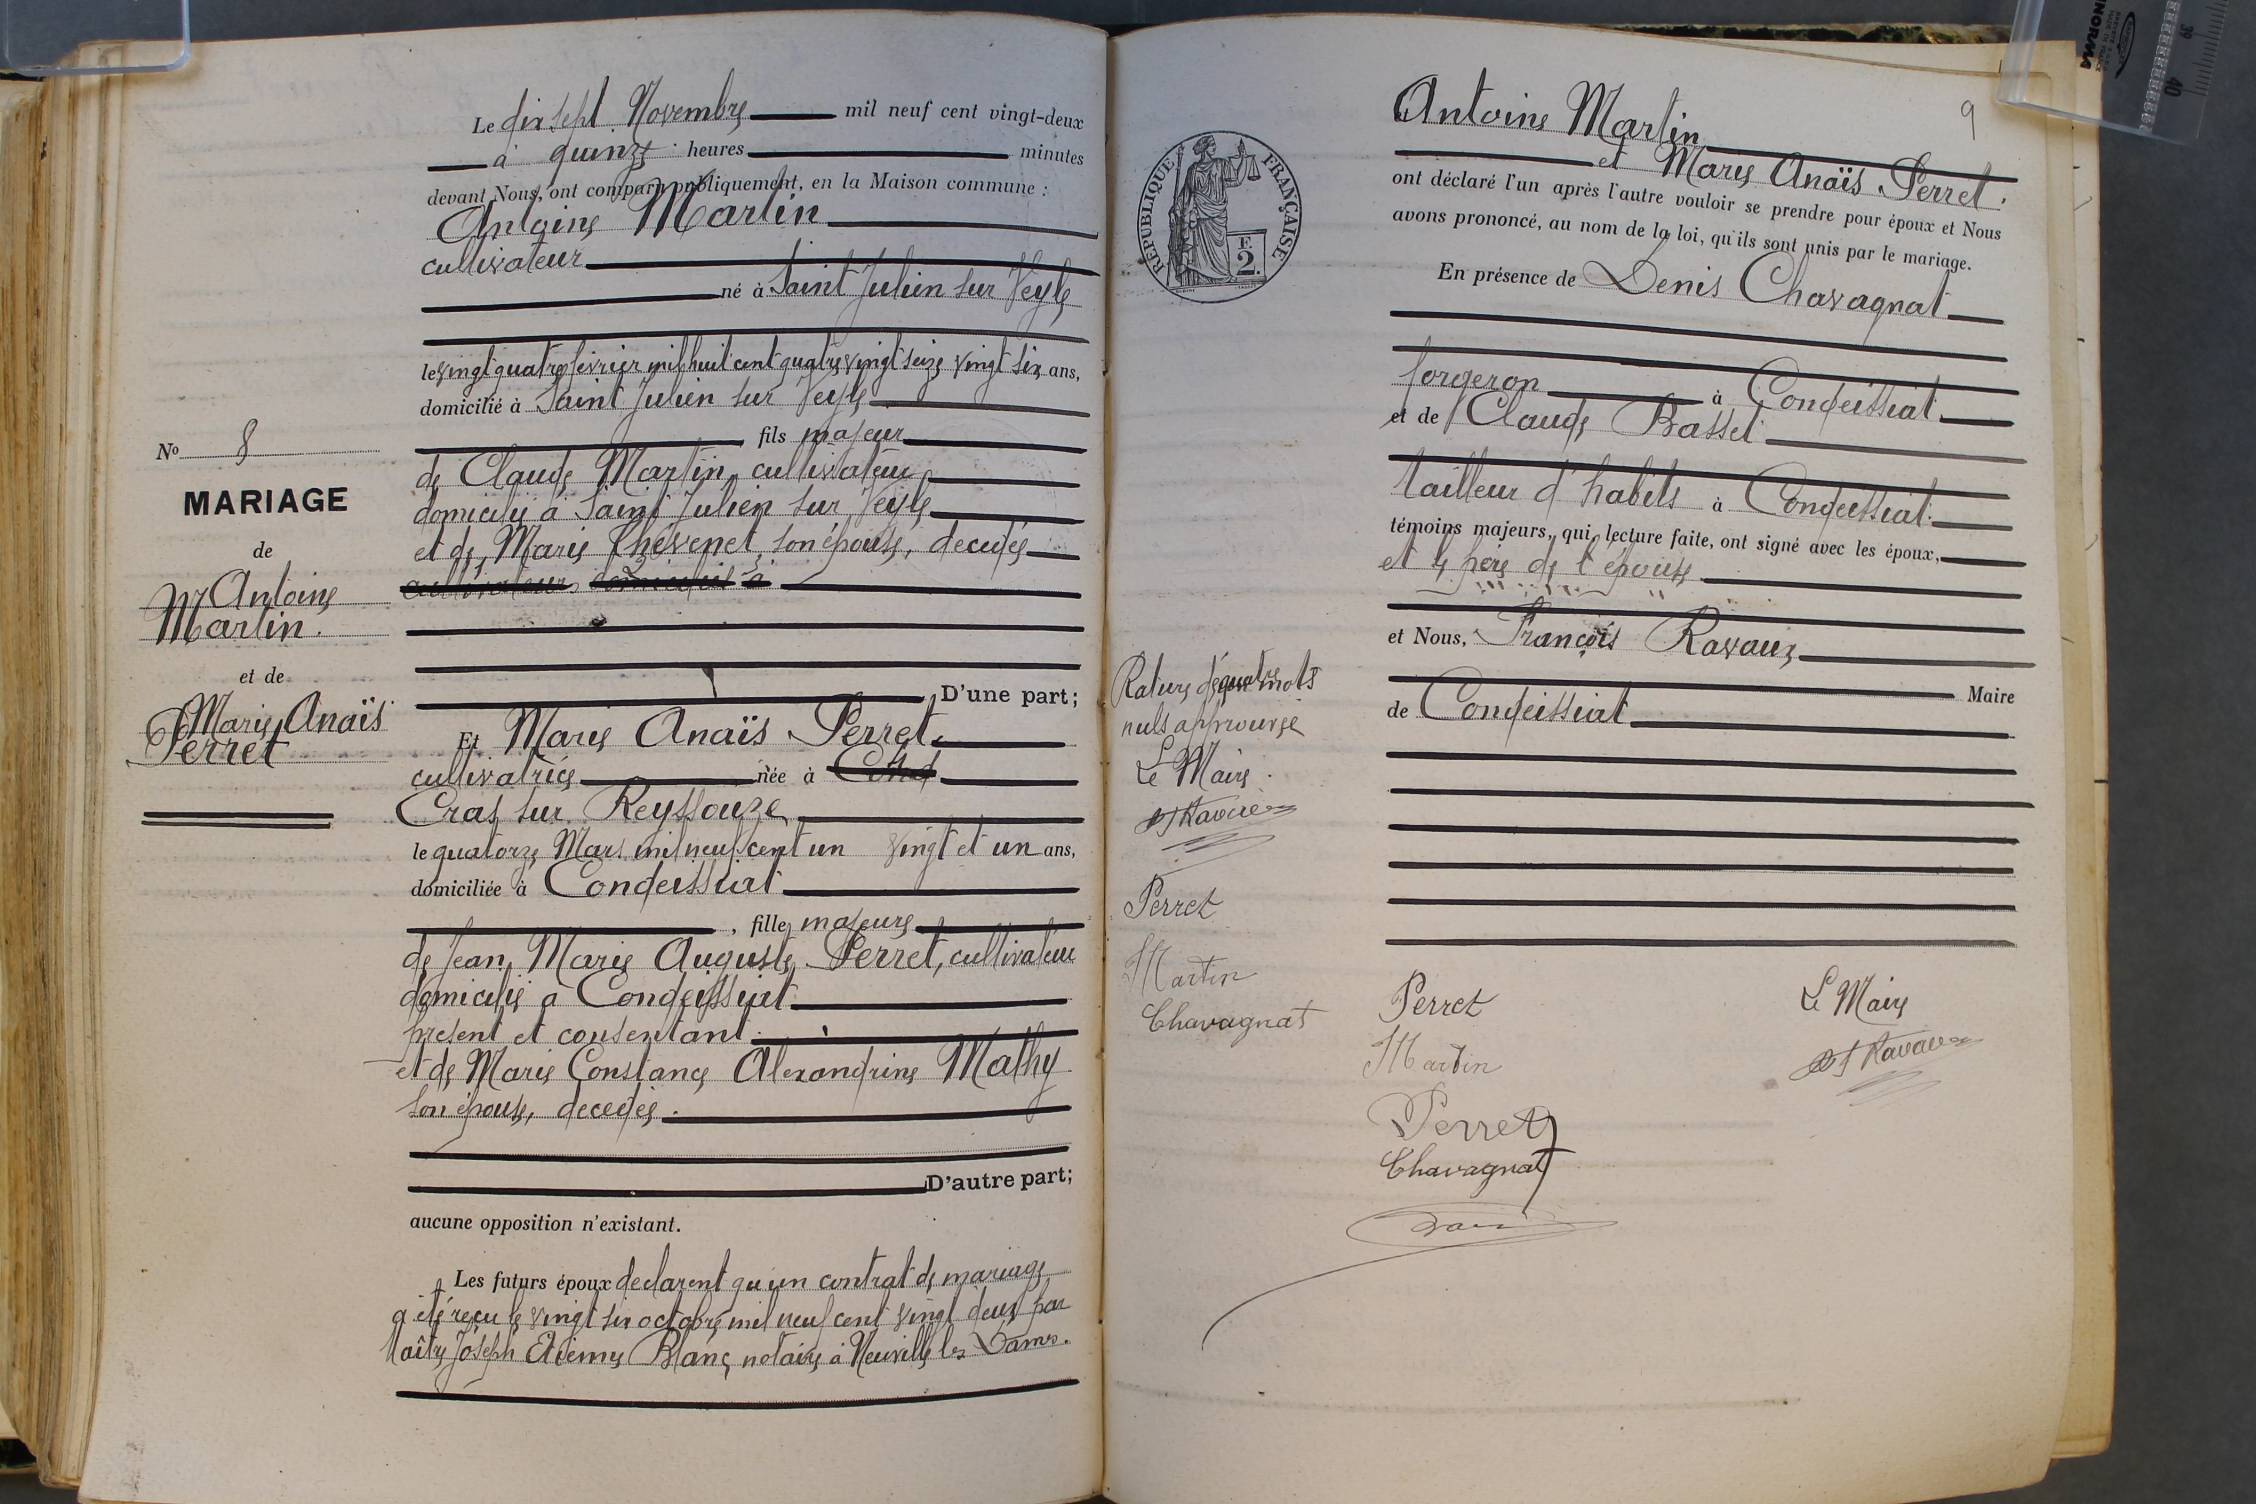 Le dix sept Novembre mil neuf cent vingt-deux
à quinze heures minutes
devant Nous, ont comparu publiquement, en la Maison commune :
Antoine Martin
cultivateur
né à Saint Julien sur Veyle
le vingt quatre février mil huit cent quatre vingt seize vingt six ans,
domicilié à Saint Julien sur Veyle
, fils majeur
de Claude Martin, cultivateur
domicilié à Saint Julien sur Veyle
et de Marie Thévenet, son épouse, decedée
cultivateurs domiciliés à
D'une part;
No 8
MARIAGE
de
M Antoine
Martin.
et de
Marie Anaïs
Perret
Et Marie Anaïs Perret
cultivatrice née à Cond
Cras sur Reyssouze
le quatorze Mars mil neuf cent un vingt et un ans,
domiciliée à Condeissiat
, fille majeure
de Jean Marie Auguste Perret, cultivateur
domicilié à Condeissiat
present et consentant.
et de Marie Constance Alexandrine Mathy
son épouse, decedée.
D'autre part;
aucune opposition n'existant.
Les futurs époux declarent qu'un contrat de mariage
a été reçu le vingt six octobre mil neuf cent vingt deux par
Maître Joseph Etienne Blanc, notaire à Neuville les Dames.
9
RÉPUBLIQUE FRANÇAISE
F.
2.
Antoine Martin
et Marie Anaïs Perret.
ont déclaré l'un après l'autre vouloir se prendre pour époux et Nous
avons prononcé, au nom de la loi, qu'ils sont unis par le mariage.
En présence de Denis Chavagnat
forgeron à Condeissiat
et de Claude Basset
tailleur d'habits à Condeissiat
témoins majeurs, qui, lecture faite, ont signé avec les époux,
et le père de l'épouse
et Nous, François Ravaux
Maire
de Condeissiat
Rature de quatre mots
nuls approuvée
Le Maire
F Ravaux
Perret
Martin
Chavagnat
Perret
Martin
Perret
Chavagnat
Le Maire
F Ravaux